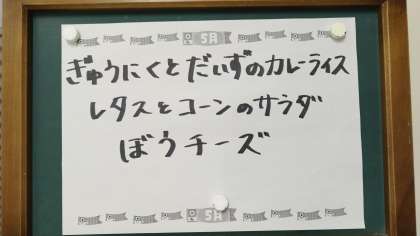 ぎゅうにくとだいずのカレーライス
レタスとコーンのサラダ
ぼうチーズ